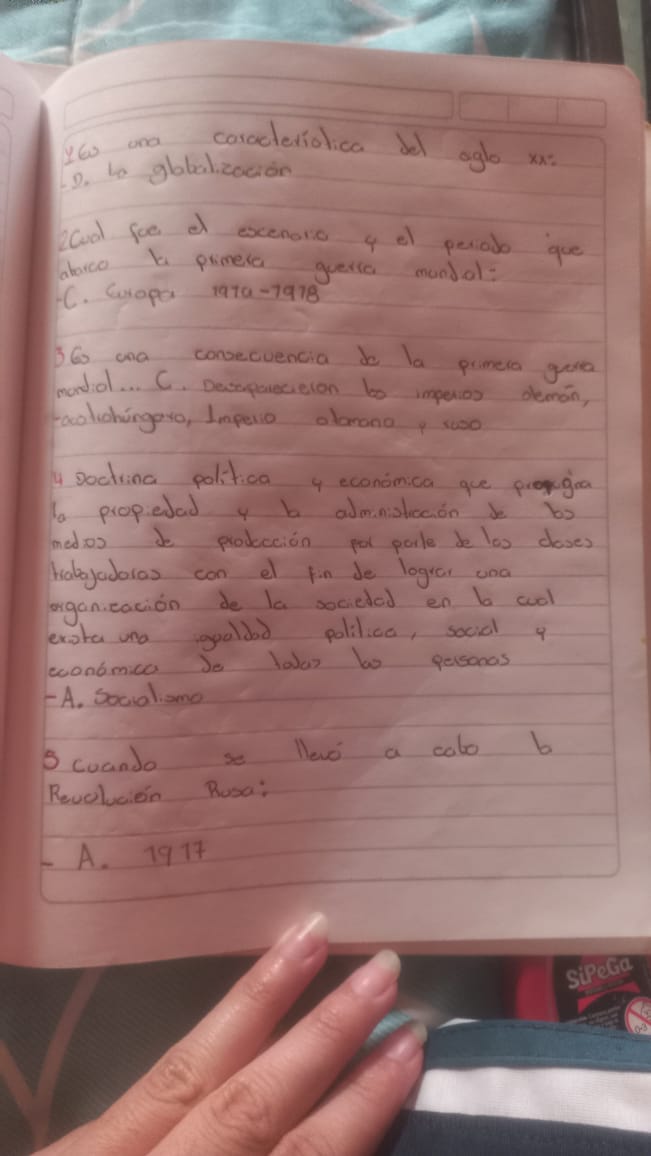 1 Es una característica del siglo xx:
- D. La globalización
2 Cual fue el escenario y el periodo que
abarco la primera guerra mundial:
- C. Europa 1914-1918
3 Es una consecuencia de la primera guerra
mundial... C. Desaparecieron los imperios alemán,
austrohúngaro, Imperio otomano y ruso
4 Doctrina política y económica que
la propiedad y la administración de los
medios de producción por parte de las clases
trabajadoras con el fin de lograr una
organización de la sociedad en la cual
exista una igualdad política, social y
económica de todas las personas
- A. Socialismo
5 Cuando se llevó a cabo la
Revolución Rusa:
- A. 1917
SiPeGa